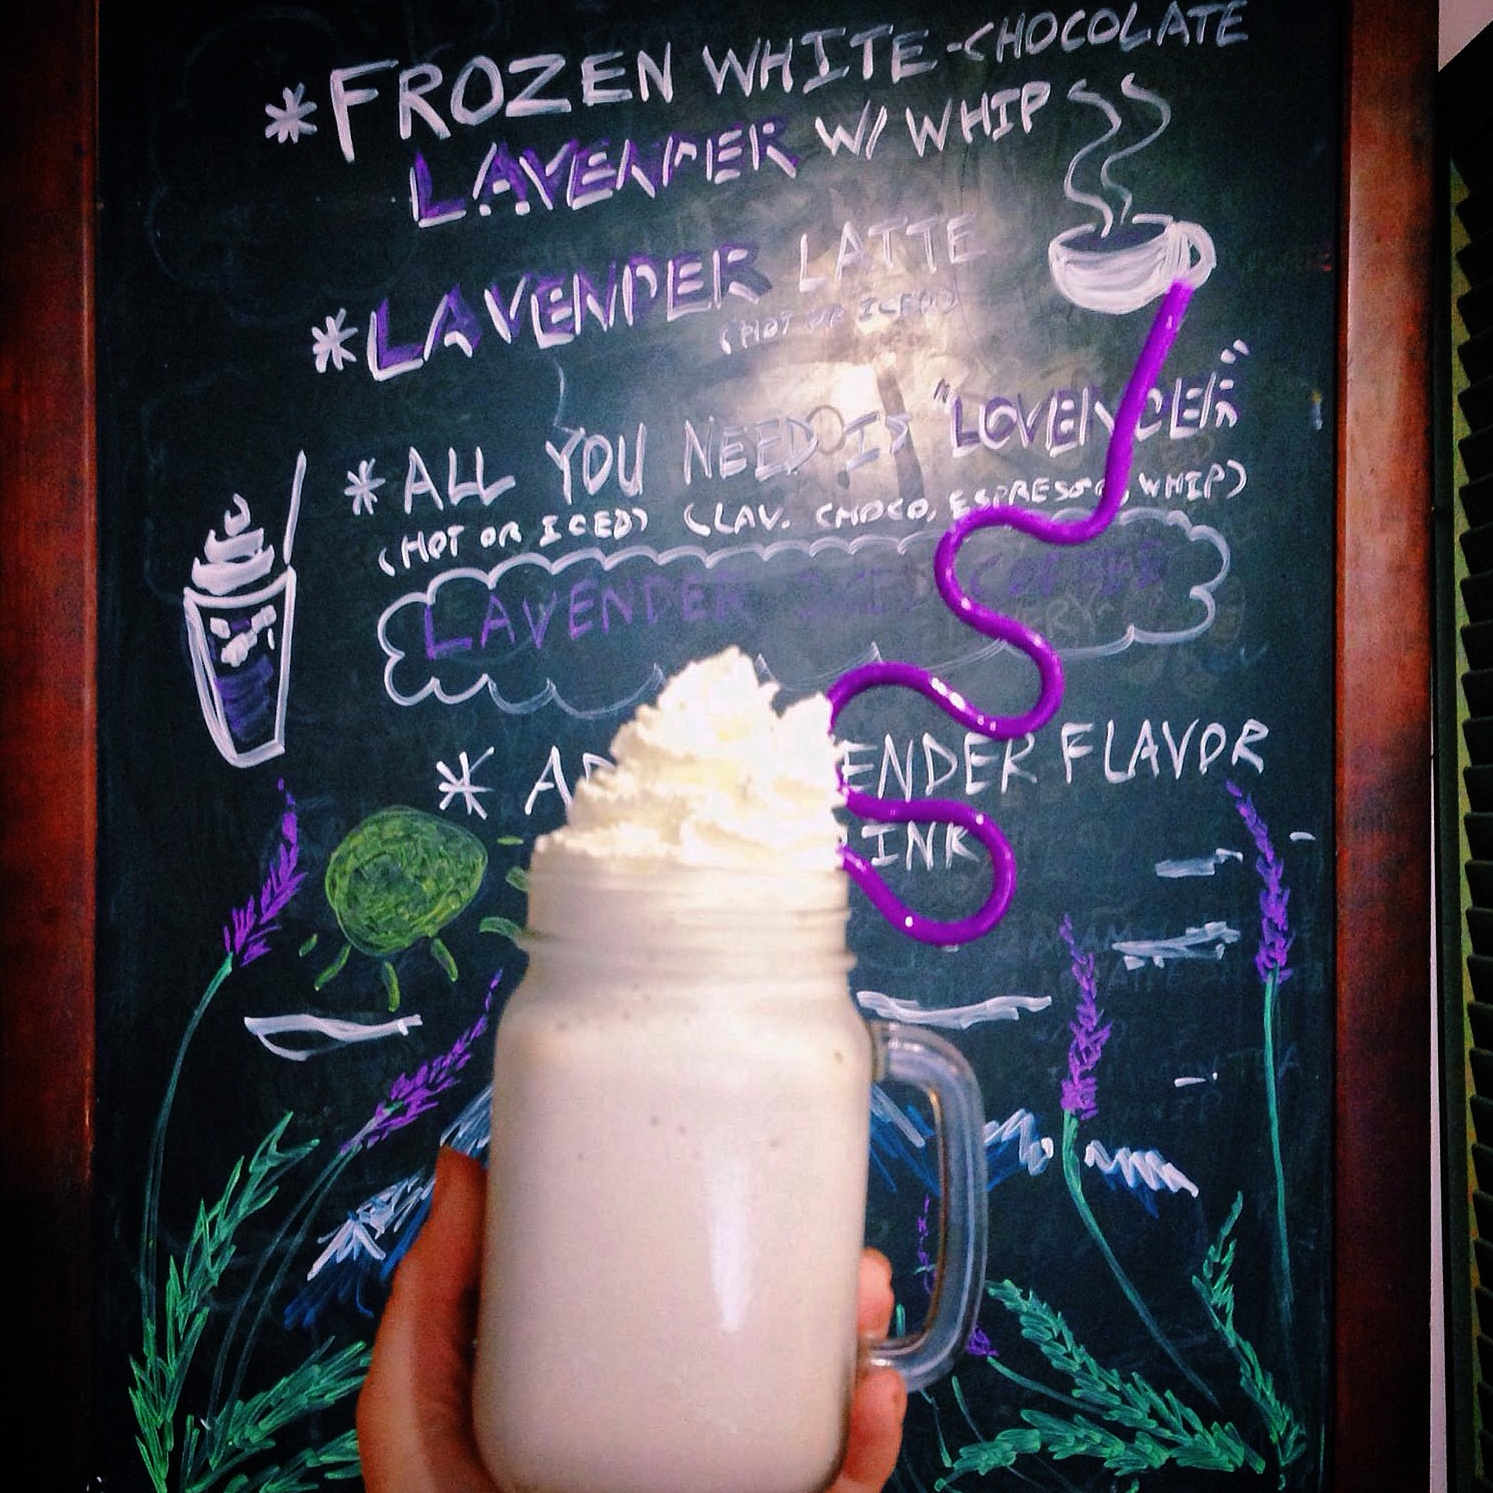 *FROZEN WHITE-CHOCOLATE
LAVENDER W/ WHIP
*LAVENDER LATTE
(HOT OR ICED)
*ALL YOU NEED IS "LOVENDER"
(HOT OR ICED) (LAV. CHOCO, ESPRESSO, WHIP)
LAVENDER ICED COFFEE
* AD ENDER FLAVOR
INK